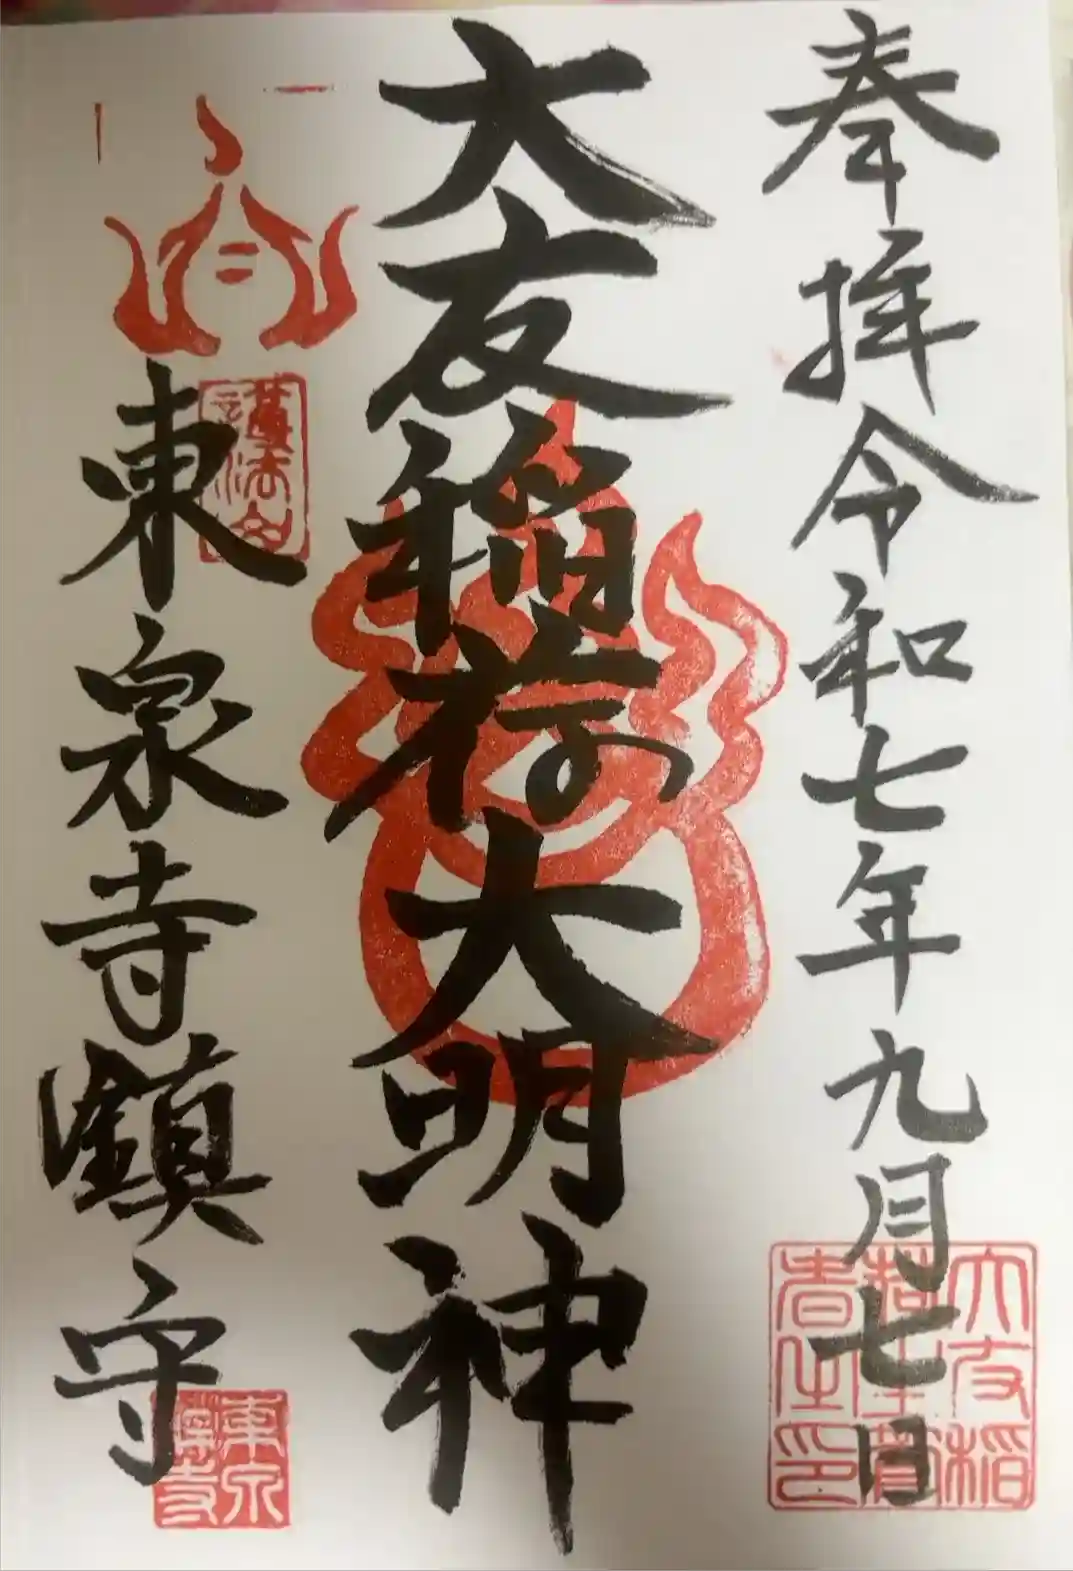 奉拝令和七年九月七日
大友稲荷大明神
東泉寺鎮守
護法
大友稲